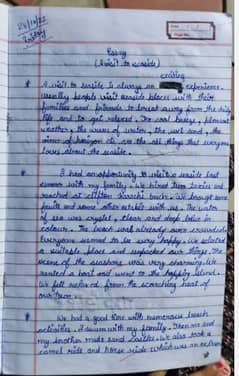 Essay
(A visit to seaside)
A visit to seaside is always an exciting experience.
usually people visit seaside places with their
families and friends to spend away from the daily
life and to get relaxed. The cool breeze, pleasant
weather, the waves of water, the wet sand, the
view of horizon etc are the all things that everyone
loves about the seaside.
I had an opportunity to visit a seaside last
summer with my family. We hired two taxies and
reached at clifton Karachi beach. We bought some
fruits and some other eatables with us. The water
of sea was crystal, clear and deep blue in
colour. The beach was already over crowded.
Everyone seemed to be very happy. We selected
a suitable place and unpacked our things. The
scene of the seashore was very charming. We
rented a boat and went to the
We felt relaxed from the scorching heat of
our town.
We had a good time with numerous beach
activities. I swam with my family. Then me and
my brother made sand castles. We also took a
camel ride and horse ride which was an extreme